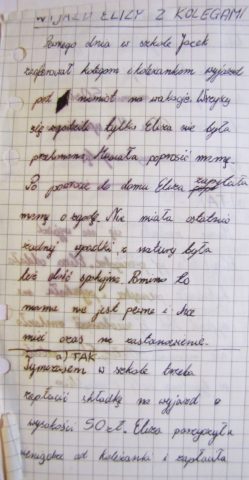 WYJAZD ELIZY Z KOLEGAMI
Pewnego dnia w szkole Jacek
zaproponował kolegom i koleżankom wyjazd
pod namiot na wakacje. Wszyscy
się zgodzili tylko Eliza nie była
przekonana. Musiała poprosić mamę.
Po powrocie do domu Eliza zapytała
mamę o zgodę. Nie miała ostatnio
żadnej wpadki i z natury była
też dość spokojna. Pomimo to
mama nie jest pewna i chce
mieć czas na zastanowienie.
a) TAK
Tymczasem w szkole trzeba
zapłacić składkę na wyjazd w
wysokości 50 zł. Eliza pożyczyła
pieniądze od koleżanki i zapłaciła